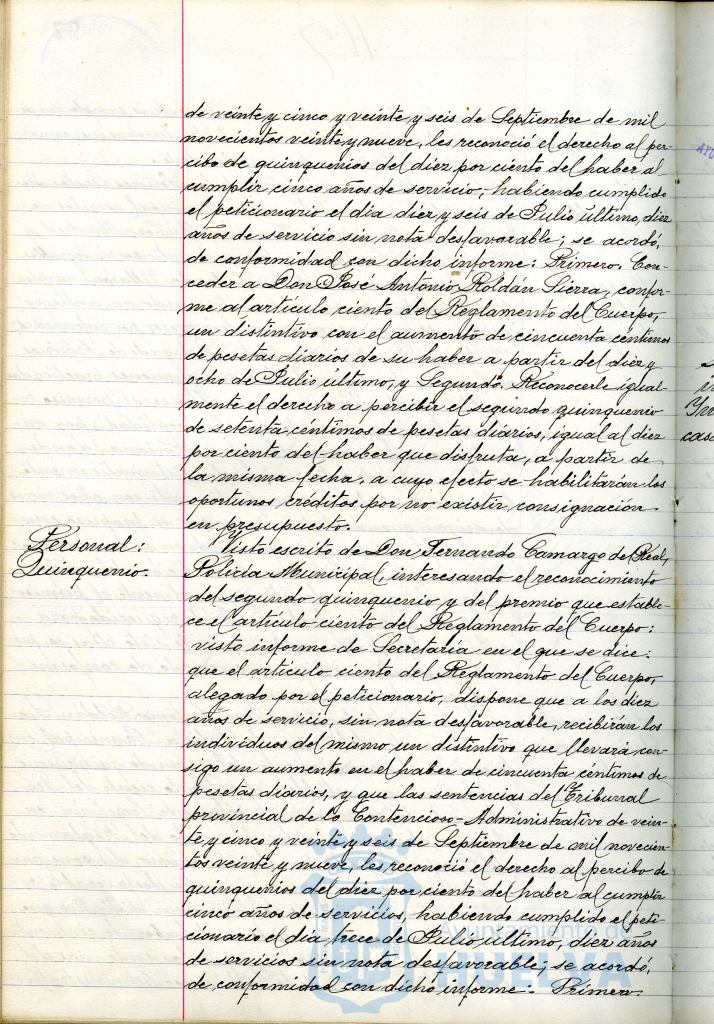 de veinte y cinco y veinte y seis de Septiembre de mil
novecientos veinte y nueve, les reconoció el derecho al per-
cibo de quinquenios del diez por ciento del haber al
cumplir cinco años de servicio; habiendo cumplido
el peticionario el dia diez y seis de Julio último, diez
años de servicio sin nota desfavorable; se acordó,
de conformidad con dicho informe: Primero. Con-
ceder a Don José Antonio Roldán Sierra, confor-
me al artículo ciento del Reglamento del Cuerpo,
un distintivo con el aumento de cincuenta céntimos
de pesetas diarios de su haber a partir del diez y
ocho de Julio último, y Segundo. Reconocerle igual-
mente el derecho a percibir el segundo quinquenio
de setenta céntimos de pesetas diarios, igual al diez
por ciento del haber que disfruta, a partir de
la misma fecha, a cuyo efecto se habilitarán los
oportunos créditos por no existir consignación
en presupuesto.
Personal:
Quinquenio.
Visto escrito de Don Fernando Camargo del Real,
Policia Municipal, interesando el reconocimiento
del segundo quinquenio y del premio que estable-
ce el artículo ciento del Reglamento del Cuerpo:
visto informe de Secretaria en el que se dice:
que el artículo ciento del Reglamento del Cuerpo,
alegado por el peticionario, dispone que a los diez
años de servicio, sin nota desfavorable, recibirán los
individuos del mismo un distintivo que llevará con-
sigo un aumento en el haber de cincuenta céntimos de
pesetas diarios, y que las sentencias del Tribunal
provincial de lo Contencioso-Administrativo de vein-
te y cinco y veinte y seis de Septiembre de mil novecien-
tos veinte y nueve, les reconoció el derecho al percibo de
quinquenios del diez por ciento del haber al cumplir
cinco años de servicios, habiendo cumplido el peti-
cionario el dia trece de Julio último, diez años
de servicios sin nota desfavorable; se acordó,
de conformidad con dicho informe: Primero.
Ayuntamiento de
HUELVA